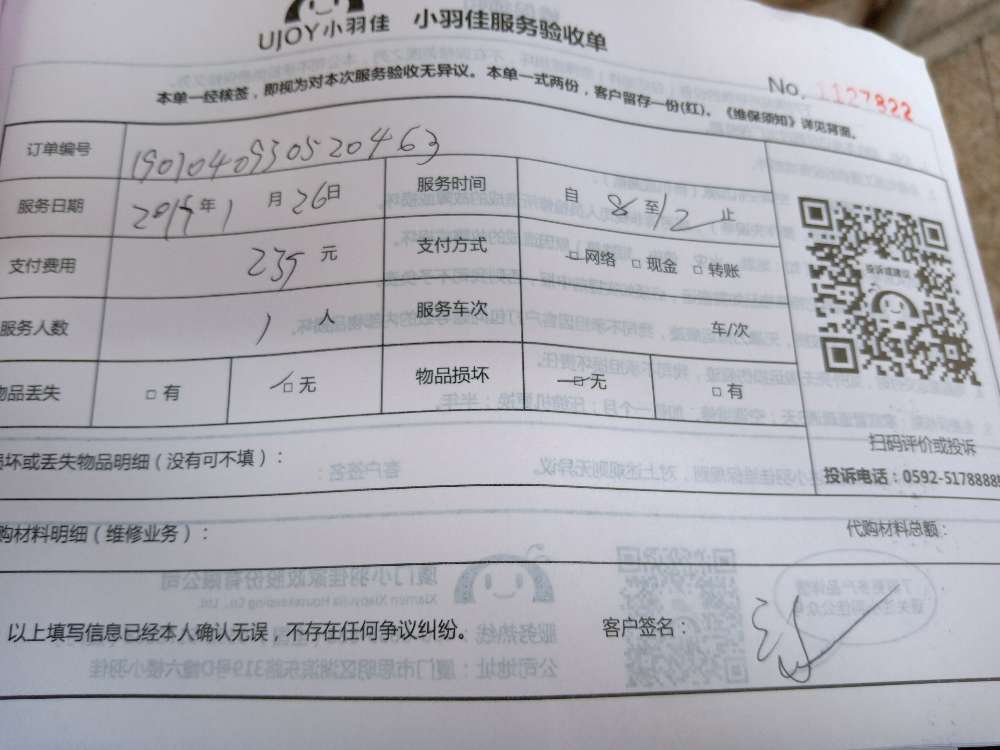 UJOY小羽佳 小羽佳服务验收单
No. 1127822
本单一经核签，即视为对本次服务验收无异议。本单一式两份，客户留存一份(红)。《维保须知》详见背面。
订单编号 1901040930520463
服务日期 2019年1月26日 服务时间 自8至12止
支付费用 235元 支付方式 □网络 □现金 □转账
服务人数 1人 服务车次 车/次
物品丢失 □有 □无 物品损坏 □无 □有
投诉或建议
扫码评价或投诉
坏或丢失物品明细（没有可不填）：
投诉电话：0592-5178888
购材料明细（维修业务）： 代购材料总额：
以上填写信息已经本人确认无误，不存在任何争议纠纷。 客户签名：